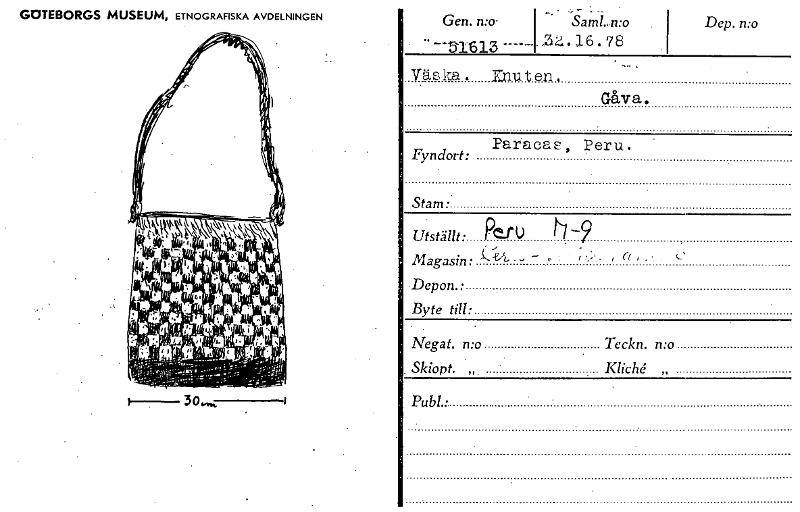 GÖTEBORGS MUSEUM, ETNOGRAFISKA AVDELNINGEN
30 cm
Gen. n:o Saml. n:o Dep. n:o
51613 32.16.78
Väska. Knuten.
Gåva.
Fyndort: Paracas, Peru.
Stam:
Utställt: Peru M-9
Magasin:
Depon.:
Byte till:
Negat. n:o Teckn. n:o
Skiopt. „ Kliché „
Publ.: